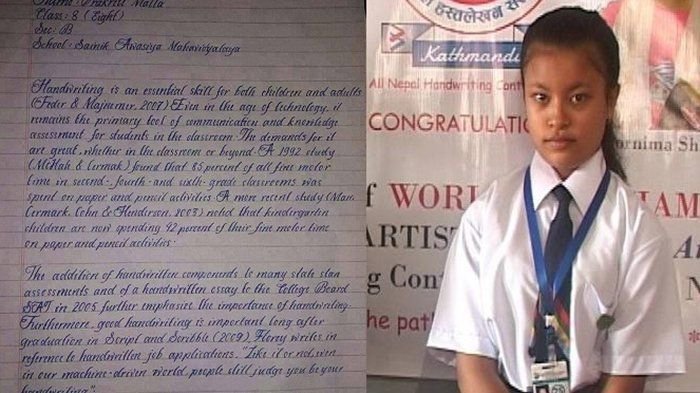 Name: Prakriti Malla
Class: 8 (Eight)
Sec: B
School: Sainik Awasiya Mahavidyalaya
Handwriting is an essential skill for both children and adults
(Feder & Majnemer, 2007) Even in the age of technology, it
remains the primary tool of communication and knowledge
assessment for students in the classroom. The demands for it
are great, whether in the classroom or beyond. A 1992 study
(McHale & Cermak) found that 85 percent of all fine motor
time in second, fourth, and sixth-grade classrooms was
spent on paper and pencil activities. A more recent study (Marr,
Cermark, Cohn & Henderson, 2003) noted that kindergarten
children are now spending 42 percent of their fine motor time
on paper and pencil activities.
The addition of handwritten components to many state stan
assessments and of a handwritten essay to the College Board
SAT in 2005 further emphasize the importance of handwriting.
Furthermore, good handwriting is important long after
graduation in Script and Scribble (2009), Florey writes in
reference to handwritten job applications, "Like it or not, even
in our machine-driven world, people still judge you by your
handwriting".
हस्तलेखन
Kathmandu
All Nepal Handwriting Cont
CONGRATULA
ornima Sh
of WOR
IAM
ARTIST
A
ng Con
N
he pat